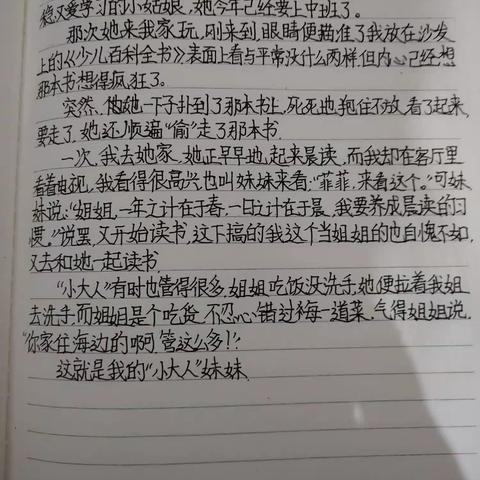 稳又爱学习的小姑娘，她今年已经要上中班了。
那次她来我家玩，刚来到，眼睛便瞄准了我放在沙发
上的《少儿百科全书》表面上看与平常没什么两样，但内心已经想
那本书想得疯狂了。
突然，她一下子扑到了那本书上，死死地抱住不放，看了起来，
要走了，她还顺道“偷”走了那本书。
一次，我去她家，她正早早地起来晨读，而我却在客厅里
看着电视，我看得很高兴也叫妹妹来看：“菲菲，来看这个。”可妹
妹说：“姐姐，一年之计在于春，一日之计在于晨，我要养成晨读的习
惯。”说罢，又开始读书，这下搞的我这个当姐姐的也自愧不如，
又去和她一起读书。
“小大人”有时也管得很多，姐姐吃饭没洗手她便拉着我姐
去洗手，而姐姐是个吃货，不忍心错过每一道菜，气得姐姐说，
“你家住海边的啊，管这么多！”
这就是我的“小大人”妹妹。